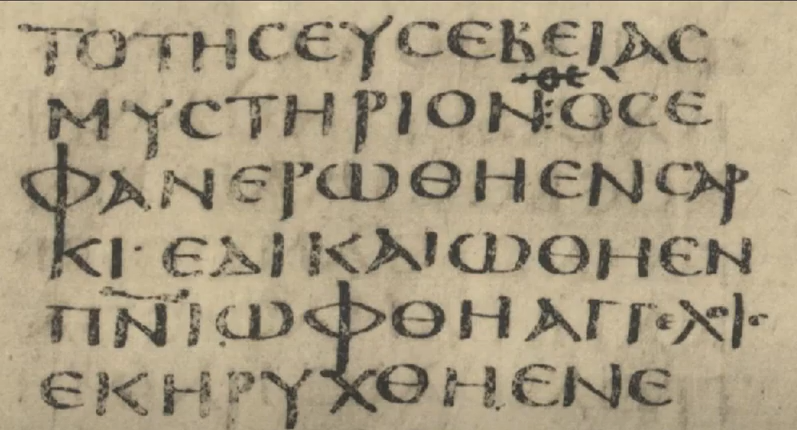 ΤΟΤΗϹΕΥϹΕΒΕΙΑϹ
θε
ΜΥϹΤΗΡΙΟΝ⁝ΟϹΕ
ΦΑΝΕΡΩΘΗΕΝϹΑΡ
ΚΙ·ΕΔΙΚΑΙΩΘΗΕΝ
ΠΝ̅Ι̅ΩΦΘΗΑΓΓ
ΕΚΗΡΥΧΘΗΕΝΕ